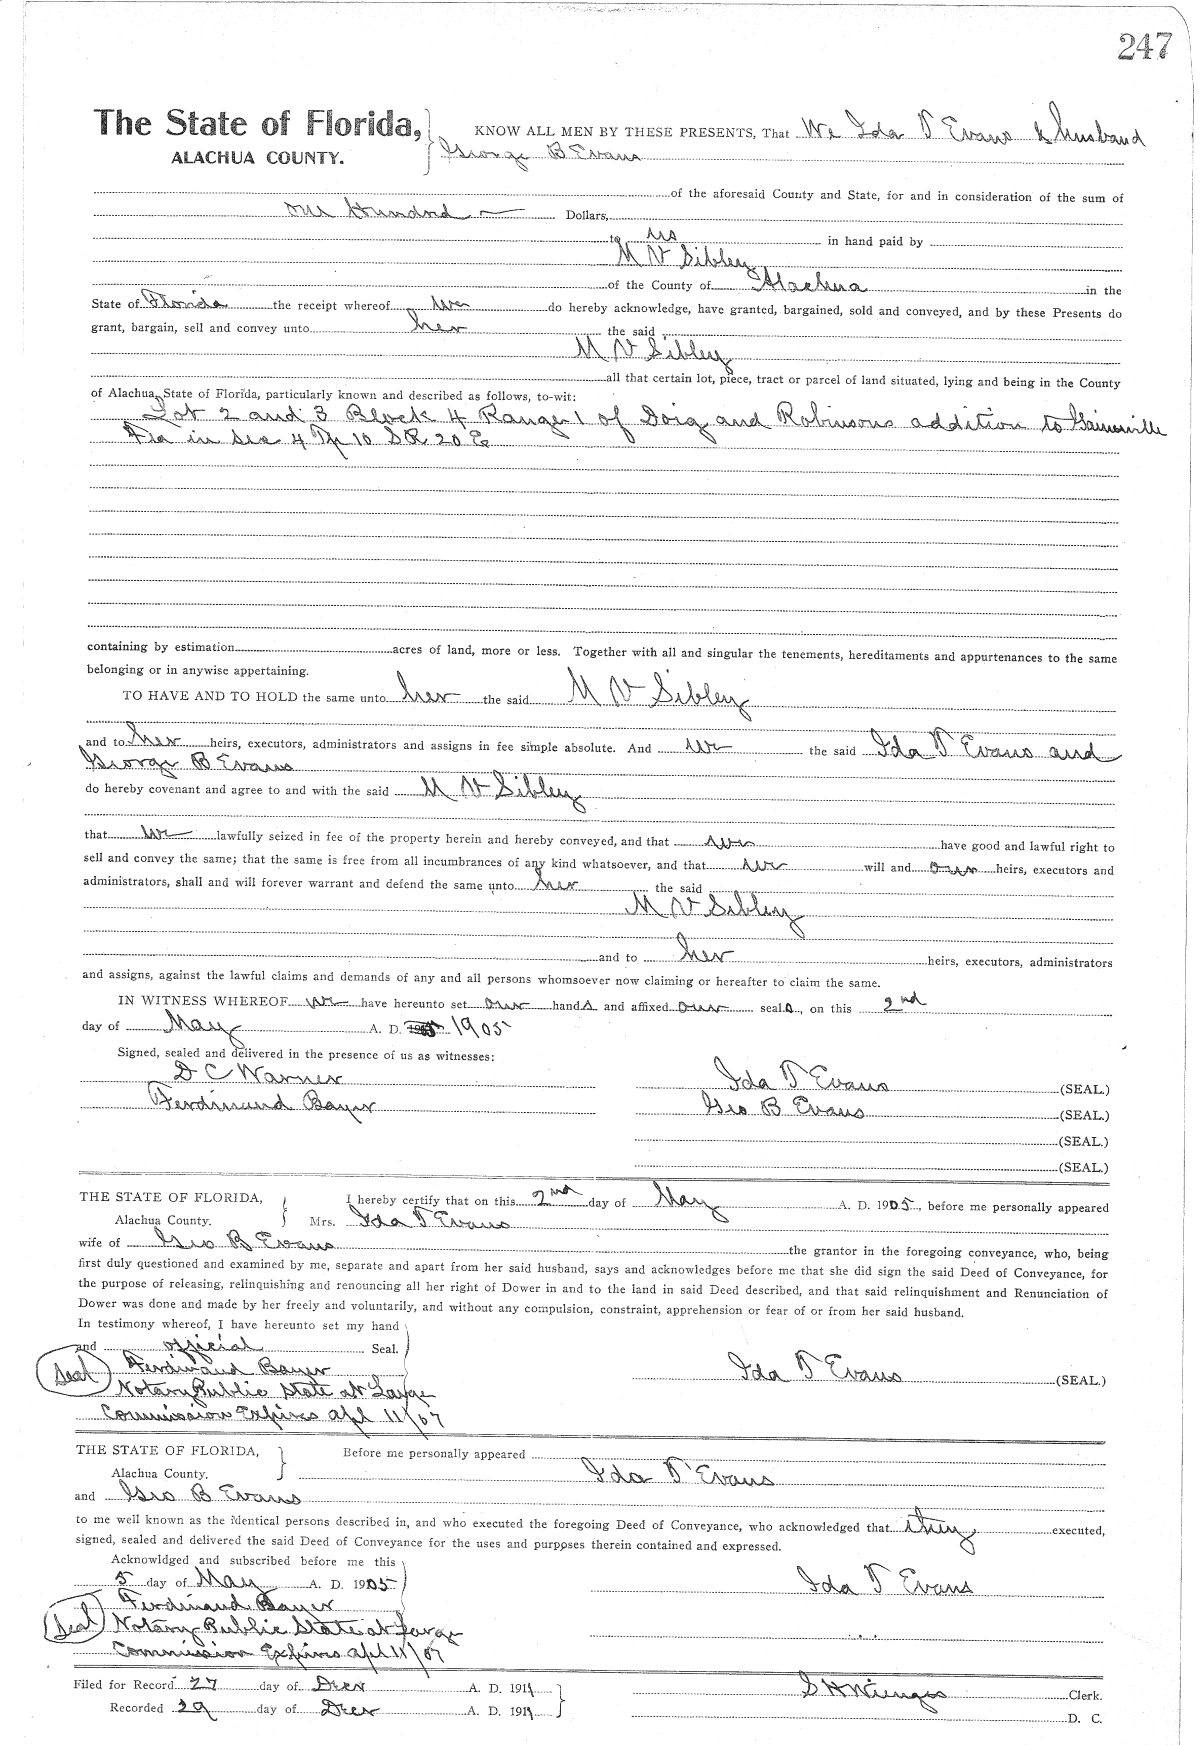 247
The State of Florida, KNOW ALL MEN BY THESE PRESENTS, That We Ida T Evans & husband
ALACHUA COUNTY. George B Evans
of the aforesaid County and State, for and in consideration of the sum of
One Hundred Dollars,
to us in hand paid by
M V Sibley
of the County of Alachua in the
State of Florida the receipt whereof we do hereby acknowledge, have granted, bargained, sold and conveyed, and by these Presents do
grant, bargain, sell and convey unto her the said
M V Sibley
all that certain lot, piece, tract or parcel of land situated, lying and being in the County
of Alachua, State of Florida, particularly known and described as follows, to-wit:
Lot 2 and 3 Block 4 Range 1 of Doig and Robinsons addition to Gainesville
Fla in Sec 4 Tp 10 S R 20 E
containing by estimation acres of land, more or less. Together with all and singular the tenements, hereditaments and appurtenances to the same
belonging or in anywise appertaining.
TO HAVE AND TO HOLD the same unto her the said M V Sibley
and to her heirs, executors, administrators and assigns in fee simple absolute. And we the said Ida T Evans and
George B Evans
do hereby covenant and agree to and with the said M V Sibley
that we lawfully seized in fee of the property herein and hereby conveyed, and that we have good and lawful right to
sell and convey the same; that the same is free from all incumbrances of any kind whatsoever, and that we will and our heirs, executors and
administrators, shall and will forever warrant and defend the same unto her the said
M V Sibley
and to her heirs, executors, administrators
and assigns, against the lawful claims and demands of any and all persons whomsoever now claiming or hereafter to claim the same.
IN WITNESS WHEREOF we have hereunto set our hands and affixed our seals, on this 2nd
day of May A. D. 1905
Signed, sealed and delivered in the presence of us as witnesses:
D C Warner Ida T Evans (SEAL.)
Ferdinand Bayer Geo B Evans (SEAL.)
(SEAL.)
(SEAL.)
THE STATE OF FLORIDA, I hereby certify that on this 2nd day of May A. D. 1905, before me personally appeared
Alachua County. Mrs. Ida T Evans
wife of Geo B Evans the grantor in the foregoing conveyance, who, being
first duly questioned and examined by me, separate and apart from her said husband, says and acknowledges before me that she did sign the said Deed of Conveyance, for
the purpose of releasing, relinquishing and renouncing all her right of Dower in and to the land in said Deed described, and that said relinquishment and Renunciation of
Dower was done and made by her freely and voluntarily, and without any compulsion, constraint, apprehension or fear of or from her said husband.
In testimony whereof, I have hereunto set my hand
and official Seal.
Seal Ferdinand Bayer Ida T Evans (SEAL.)
Notary Public State at Large
Commission Expires apl 11/07
THE STATE OF FLORIDA, Before me personally appeared
Alachua County. Ida T Evans
and Geo B Evans
to me well known as the identical persons described in, and who executed the foregoing Deed of Conveyance, who acknowledged that they executed,
signed, sealed and delivered the said Deed of Conveyance for the uses and purpses therein contained and expressed.
Acknowldged and subscribed before me this
5 day of May A. D. 1905 Ida T Evans
Ferdinand Bayer
Seal Notary Public State at Large
Commission Expires apl 11/07
Filed for Record 27 day of Dec A. D. 191 Clerk.
Recorded 29 day of Dec A. D. 191 D. C.